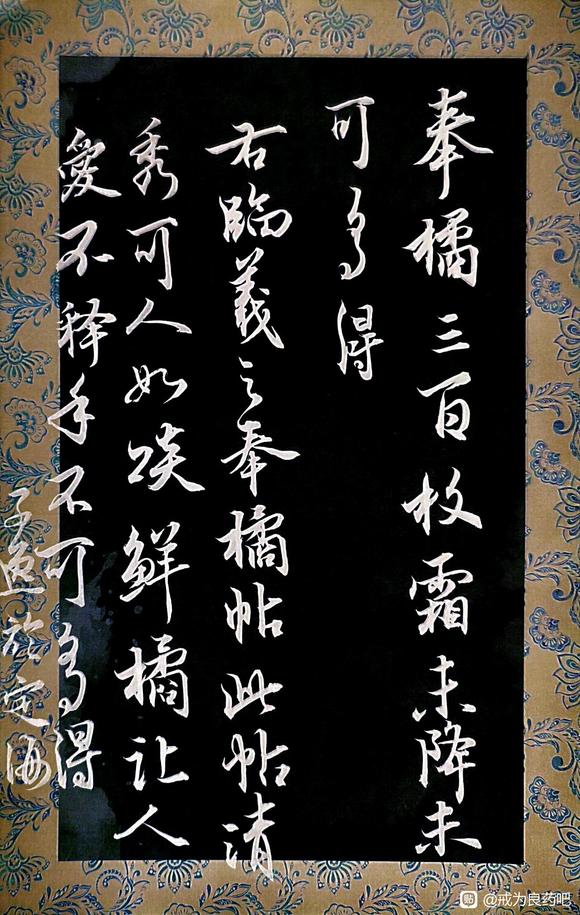 奉橘三百枚霜未降未
可多得
右临羲之奉橘帖此帖清
秀可人如啖鲜橘让人
爱不释手不可多得
于定海
@戒为良药吧